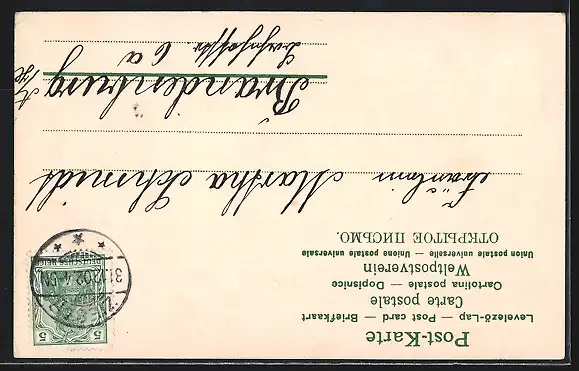 Post-Karte
Levelező-Lap — Post card — Briefkaart
Carte postale
Cartolina postale — Dopisnice
Weltpostverein
Union postale universelle — Unione postale universale
ОТКРЫТОЕ ПИСЬМО.
5 5
DEUTSCHES REICH
31.12.02.4-5N
Fräulein Martha Schmidt
Brandenburg
6a